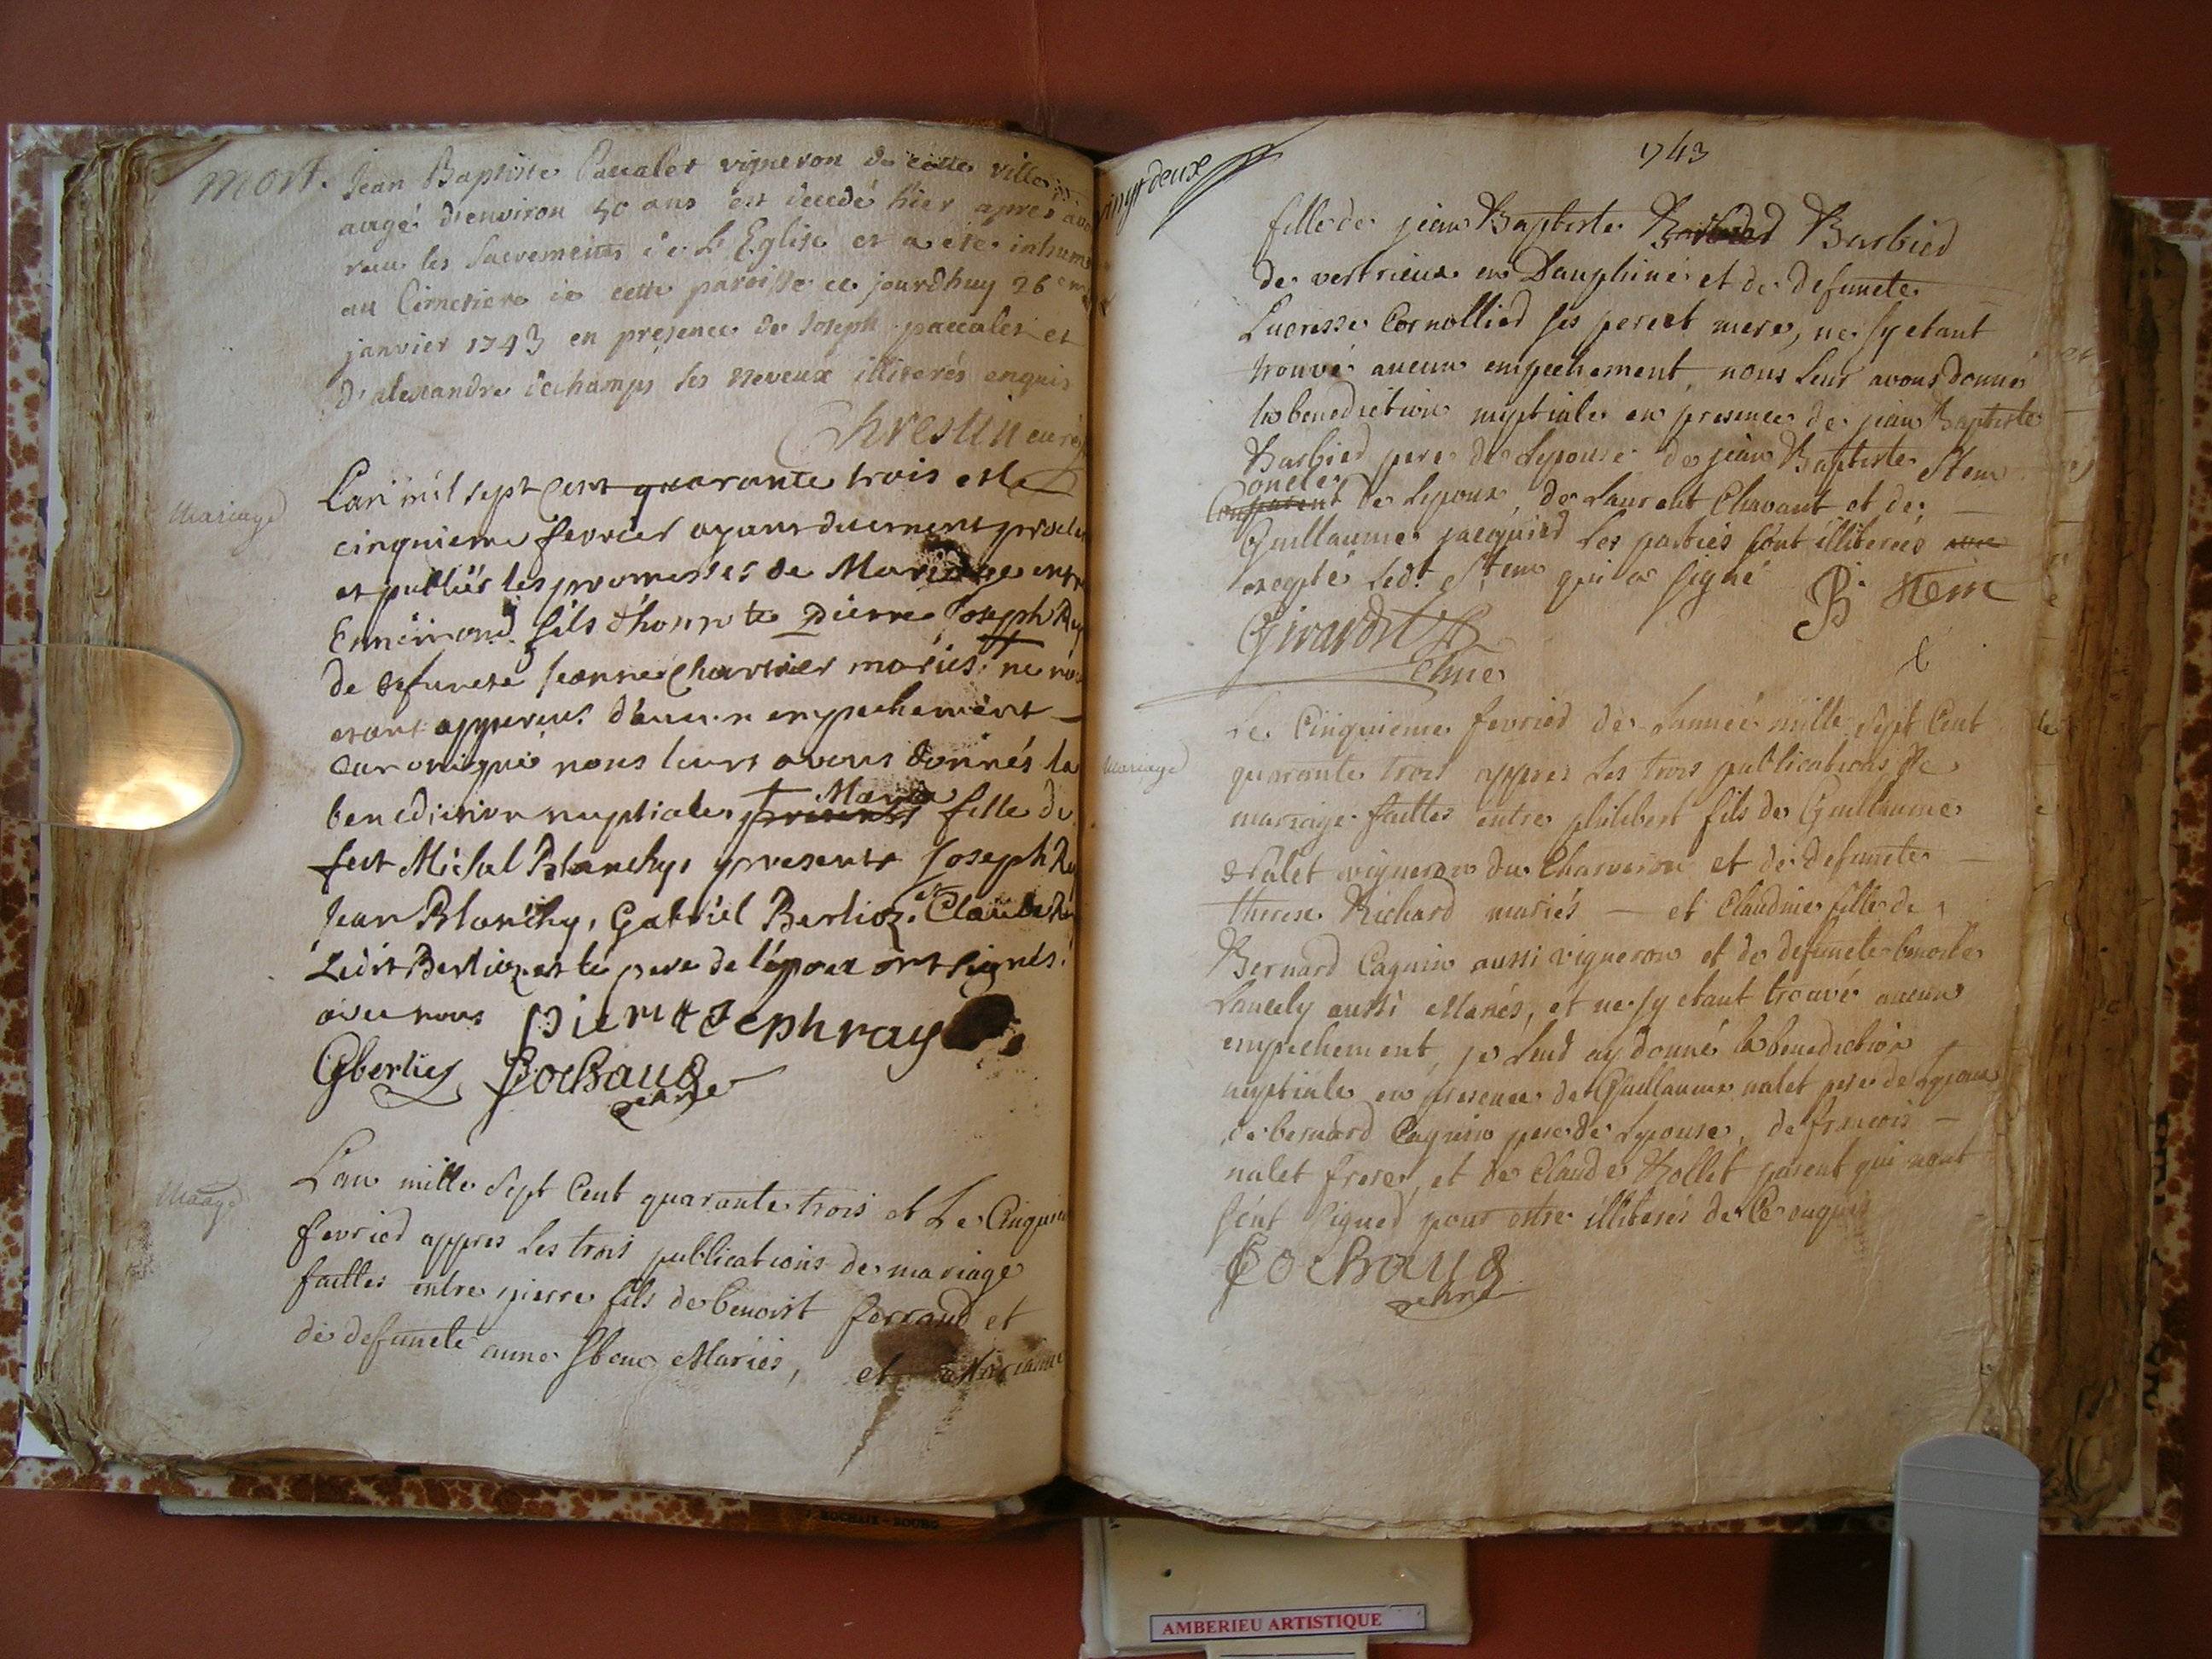 mort. Jean Baptiste Paccalet vigneron de cette ville
aagé d'environ 50 ans est decedé hier apres avo
receu les Sacrements de L'Eglise et a eté inhumé
au Cimetiere de cette paroisse ce jourdhuy 26
janvier 1743 en presence de Joseph paccalet et
d'alexandre dechamps ses neveux illiterés enquis
Chrestin curé
Mariage
L'an mil sept cent quarante trois et le
cinquieme fevrier ayant duement
et publiés les promesses de Mariage entre
Ennemond fils d'honnete Pierre Joseph Ray
de defuncte Jeanne Charvier mariés ne nous
etant apperceus d'aucun empechement
canonique nous leurs avons donnés la
benediction nuptiale Marie fille de
feut Michel Blanchy, presents Joseph Ra
Jean Blanchy, Gabriel Berlioz et Claude
Ledit Berlioz et le pere de l'epoux ont signés
avec nous pierre Jsephray
Gberlioz Cochaud
Mariage
L'an mille Sept Cent quarante trois et Le Cinquie
fevried appres Les trois publications de mariage
faittes entre pierre fils de benoist ferrand et
de defuncte anne Mariés, et Marianne
vingt deux
1743
fille de jean Baptiste Barbied
de vertrieux en Dauphiné et de defuncte
Lucresse Cornollied ses pere et mere, ne sy etant
trouvé aucun empechement, nous leur avons donné
la benediction nuptiale en presence de jean Baptiste
Barbied pere de Lepouse de jean Baptiste Stem
oncle
de Lepoux, de Laurent Chavant et de
Guillaume jacquied Les parties sont illiterées
excepté Ledt. Stem qui a signé B Stem
Girardet
Mariage
Le Cinquieme fevried de Lannée mille Sept Cent
quarante trois appres Les trois publications de
mariage faittes entre philibert fils de Guillaume
Nalet vigneron du Charveron et de defuncte
therese Richard mariés — et Claudine fille de
Bernard Cagnin aussi vigneron et de defuncte benoite
Lancely aussi Mariés, et ne sy etant trouvé aucun
empechement, je Leud ay donné la benediction
nuptiale en presence de Guillaume nalet pere de Lepoux
de bernard Cagnin pere de Lepouse, de francois —
nalet frere, et de Claude Rollet parent qui nont
sent signed pour estre illiterés de Ce enquis
Cochaud
ROCHAIX - BOURG
AMBERIEU ARTISTIQUE